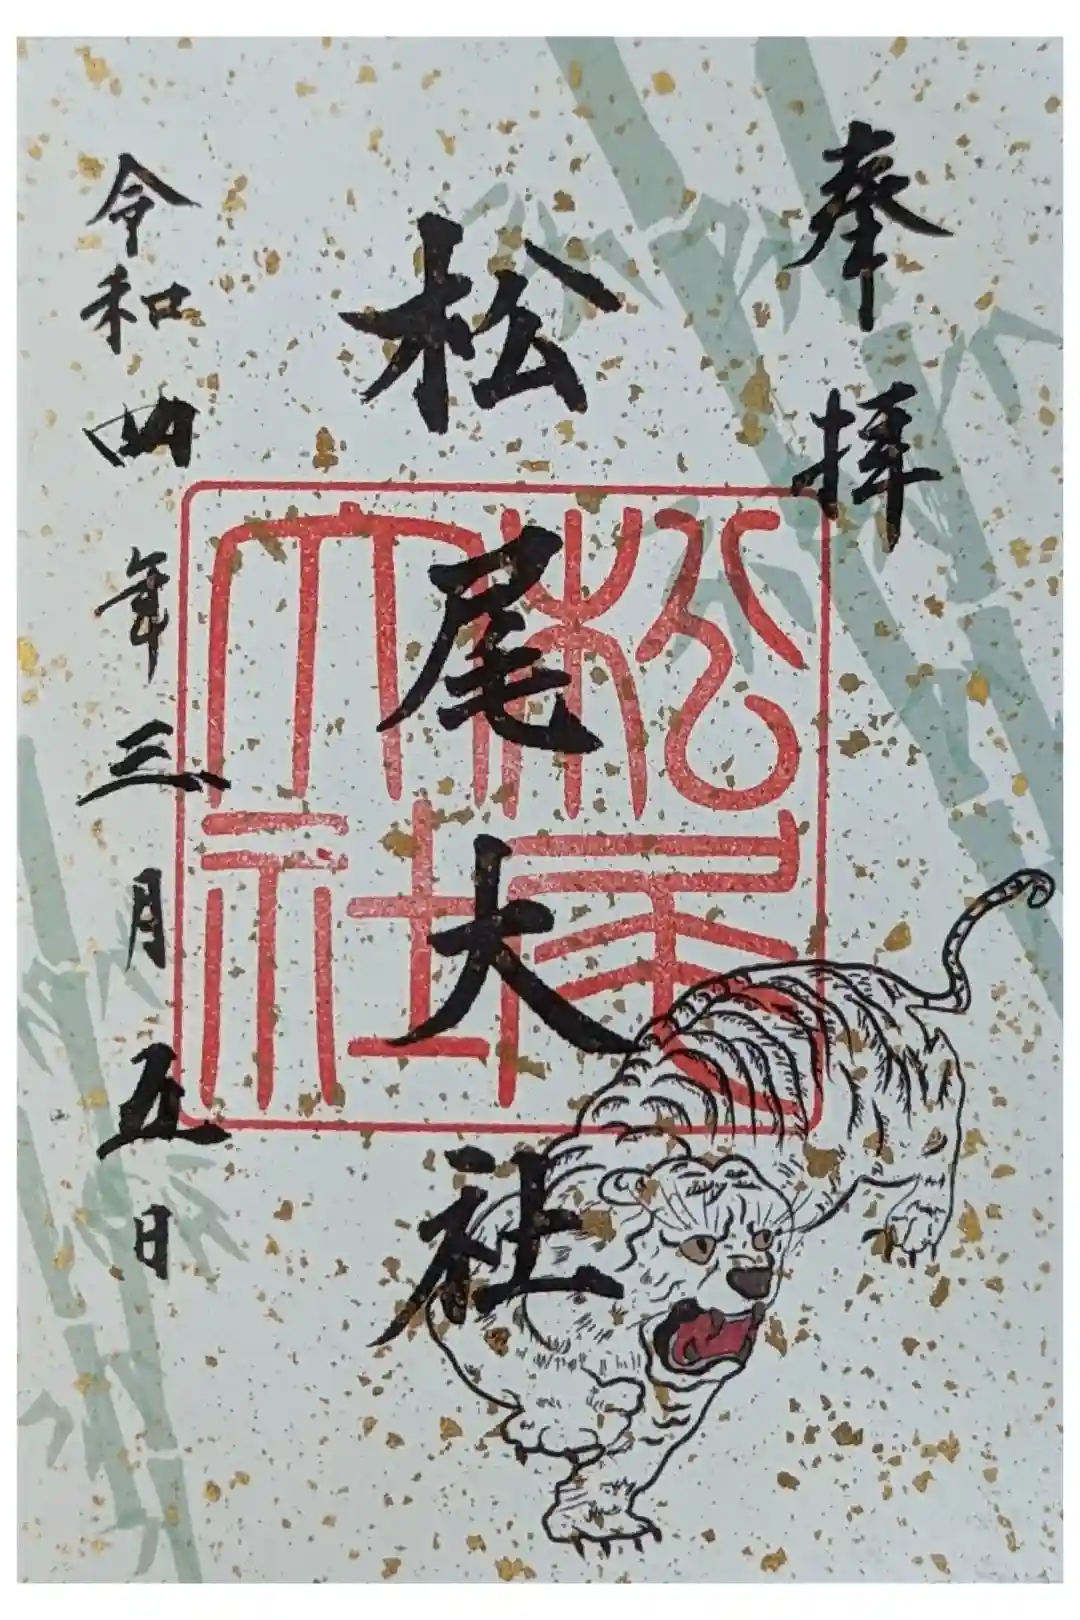 奉拝
松尾大社
松尾大社
令和四年三月五日